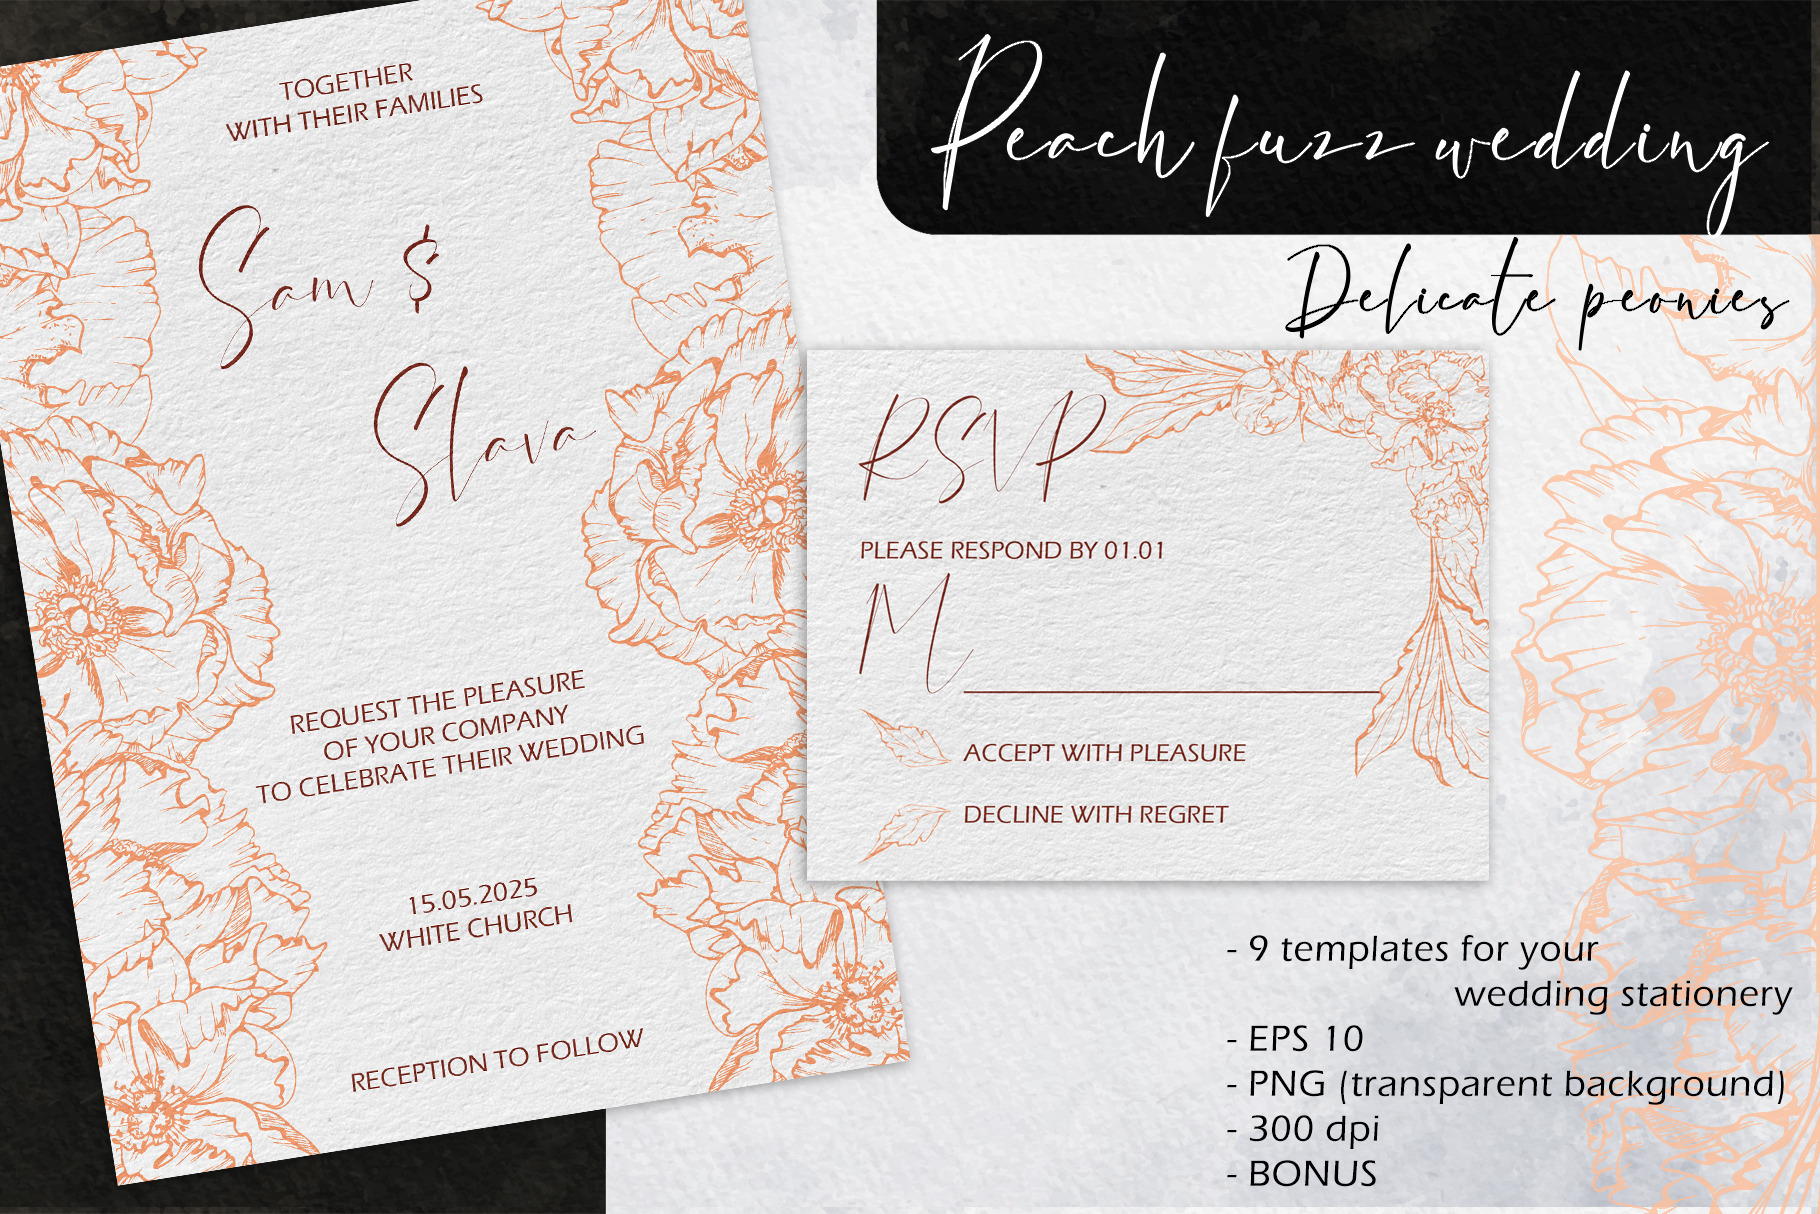 TOGETHER
WITH THEIR FAMILIES
Sam &
Slava
REQUEST THE PLEASURE
OF YOUR COMPANY
TO CELEBRATE THEIR WEDDING
15.05.2025
WHITE CHURCH
RECEPTION TO FOLLOW
Peach fuzz wedding
Delicate peonies
RSVP
PLEASE RESPOND BY 01.01
M
ACCEPT WITH PLEASURE
DECLINE WITH REGRET
- 9 templates for your
wedding stationery
- EPS 10
- PNG (transparent background)
- 300 dpi
- BONUS